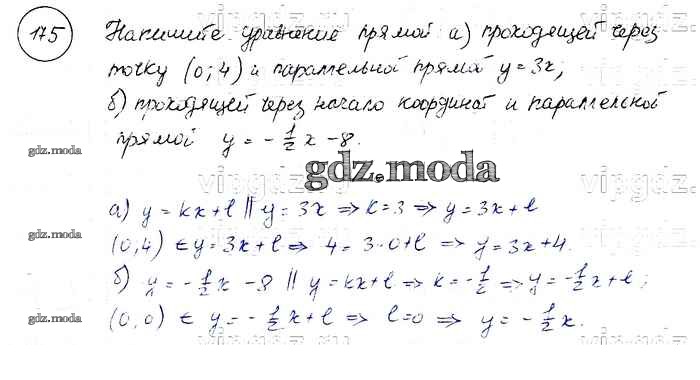 175
Напишите уравнение прямой а) проходящей через
точку (0; 4) и параллельной прямой y = 3x;
б) проходящей через начало координат и параллельной
прямой y = -1/2 x - 8.
gdz.moda
gdz.moda
а) y = kx + l || y = 3x ⇒ k = 3 ⇒ y = 3x + l
gdz.moda
(0,4) ∈ y = 3x + l ⇒ 4 = 3·0 + l ⇒ y = 3x + 4.
б) y = -1/2 x - 8 || y = kx + l ⇒ k = -1/2 ⇒ y = -1/2 x + l;
gdz.moda
(0,0) ∈ y = -1/2 x + l ⇒ l = 0 ⇒ y = -1/2 x.